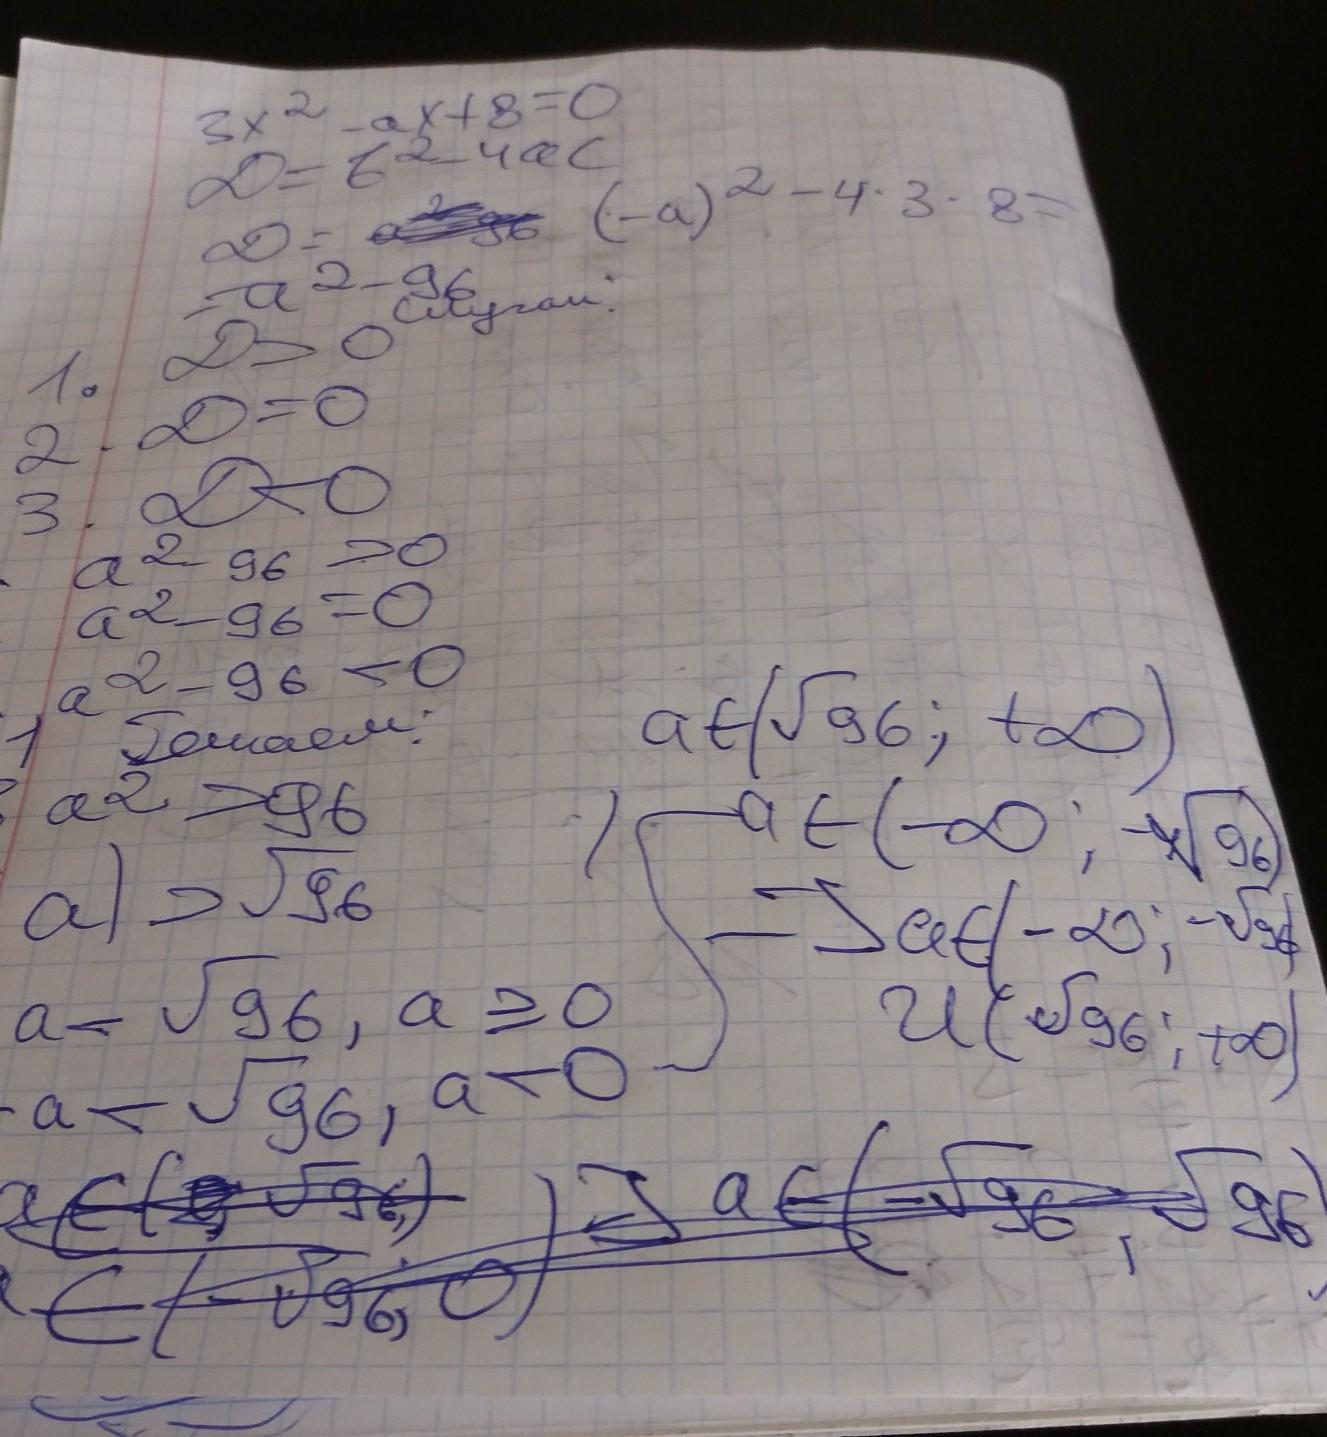 3x² - ax + 8 = 0
D = b² - 4ac
D = (-a)² - 4·3·8 =
= a² - 96
Случаи:
1. D > 0
2. D = 0
3. D < 0
a² - 96 > 0
a² - 96 = 0
a² - 96 < 0
1 Решаем:
a² > 96
a| > √96
a < √96, a ≥ 0
-a < √96, a < 0
a ∈ (√96; +∞)
a ∈ (-∞; -√96)
=> a ∈ (-∞; -√96)
U (√96; +∞)
a ∈ (-√96, √96)
∈ (-√96, 0)